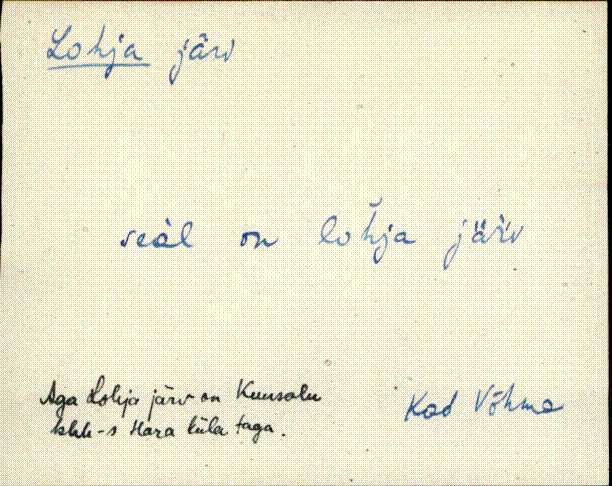 Lohja järv
seäl on lohja järv
Aga Lohja järv on Kuusalu
khk-s Hara küla taga.
Kad Võhma